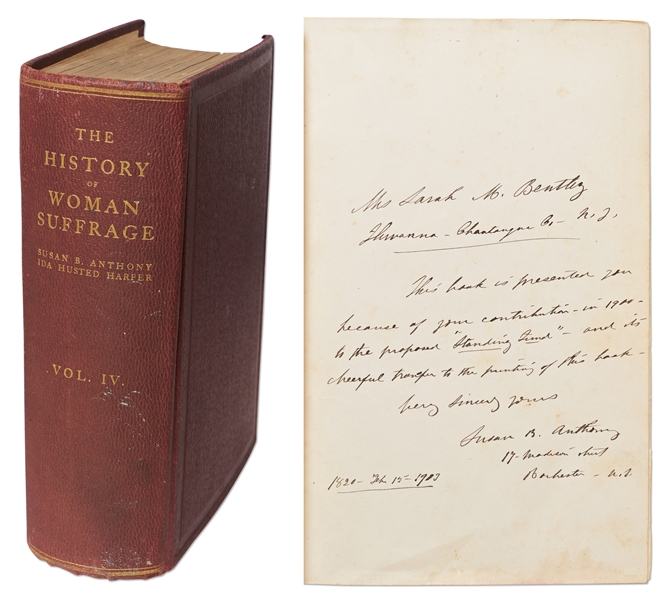 THE
HISTORY
OF
WOMAN
SUFFRAGE
SUSAN B. ANTHONY
IDA HUSTED HARPER
VOL. IV.
Mrs Sarah M. Bentley
Chautauqua Co- N. Y.
This book is presented you
because of your contribution - in 1900 -
to the proposed "Standing Fund" - and its
cheerful transfer to the printing of this book -
Very sincerely yours
Susan B. Anthony
17- Madison street
Rochester - N.Y.
1820 - Feb 15 - 1903